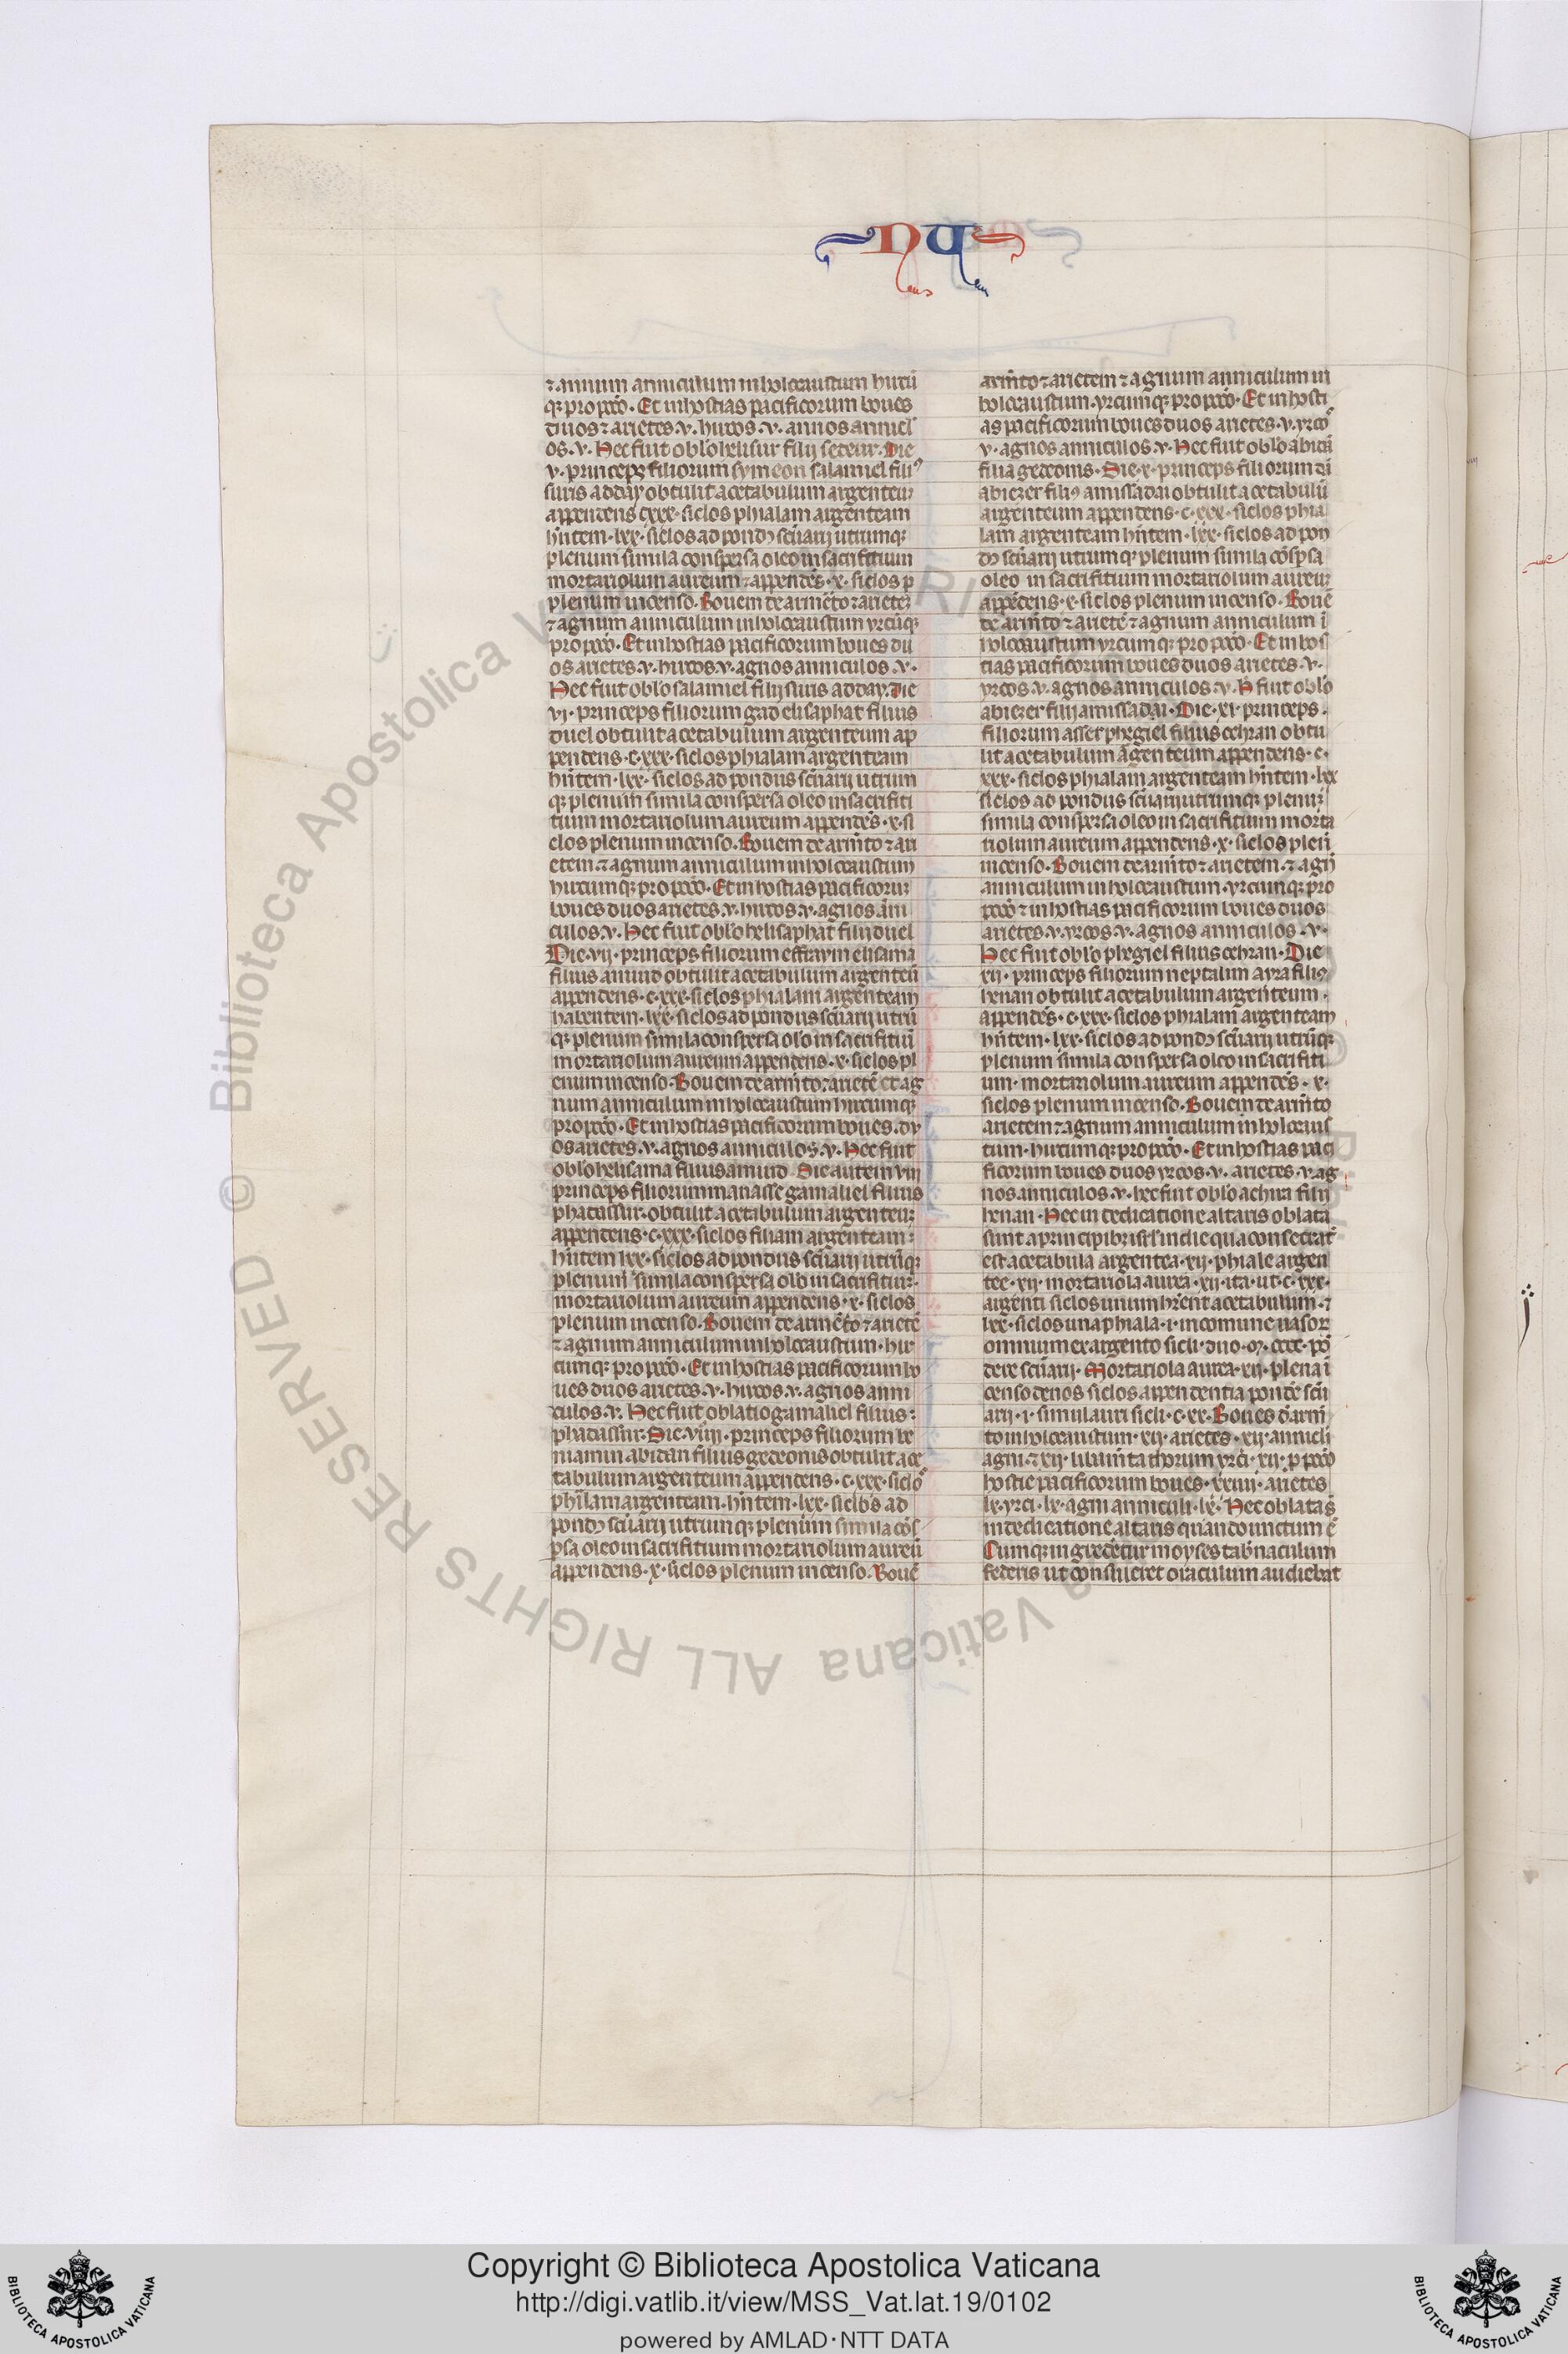 NU
⁊ annum anniculum in holocaustum hircū
qꝫ pro pctō. Et in hostias pacificorum boues
duos ⁊ arietes .v. hircos .v. annos annicl̄
os .v. Hec fuit obl̄o helisur filij sedeur. Die
.v. princeps filiorum symeon salamiel filiꝰ
suris adday obtulit acetabulum argenteuꝫ
appendens cxxx. siclos phialam argenteam
hn̄tem .lxx. siclos ad pondꝰ sc̄uarij utrumqꝫ
plenum simila conspersa oleo in sacrificium
mortariolum aureum ⁊ appendēs .x. siclos p
plenum incenso. Bouem de armēto ⁊ arieteꝫ
⁊ agnum anniculum in holocaustum yrcūqꝫ
pro pctō. Et in hostias pacificorum boues du
os arietes .v. hircos .v. agnos anniculos .v.
Hec fuit obl̄o salamiel filij suris adday. Die
vj. princeps filiorum gad elisaphat filius
duel obtulit acetabulum argenteum ap
pendens .c.xxx. siclos phialam argenteam
hn̄tem .lxx. siclos ad pondus sc̄uarij utrum
qꝫ plenum simila conspersa oleo in sacrifiti
tium mortariolum aureum appendēs .x. si
clos plenum incenso. Bouem de arm̄to ⁊ ari
etem ⁊ agnum anniculum in holocaustum
hircumqꝫ pro pctō. Et in hostias pacificoruꝫ
boues duos arietes .v. hircos .v. agnos āni
culos .v. Hec fuit obl̄o helisaphat filii duel
Die .vij. princeps filiorum effraym elisama
filius amiud obtulit acetabulum argenteū
appendens .c.xxx. siclos phialam argenteam
habentem .lxx. siclos ad pondus sc̄uarij utrū
qꝫ plenum simila conspersa olō in sacrifitiū
mortariolum aureum appendens .x. siclos pl
enum incenso. Bouem de arm̄to ⁊ arietē et ag
num anniculum in holocaustum hircumqꝫ
pro pctō. Et in hostias pacificorum boues .du
os arietes .v. agnos anniculos .v. Hec fuit
obl̄o helisama filius amiud Die autem viij
princeps filiorum manasse gamaliel filius
phadassur. obtulit acetabulum argenteuꝫ
appendens .c.xxx. siclos filiam argenteam:
hn̄tem lxx. siclos ad pondus sc̄uarij utrūqꝫ
plenum simila conspersa olō in sacrifitiuꝫ.
mortariolum aureum appendens .x. siclos
plenum incenso. Bouem de armēto ⁊ arietē
⁊ agnum anniculum in holocaustum. hir
cumqꝫ pro pctō. Et in hostias pacificorum bo
ues duos arietes .v. hircos .v. agnos anni
culos .v. Hec fuit oblatio gamaliel filius:
phadassur. Die .viiij. princeps filiorum be
niamin abidan filius gedeonis obtulit ace
tabulum argenteum appendens .c.xxx. siclo
philam argenteam. hn̄tem .lxx. siclos ad
pondꝰ sc̄uarij utrumqꝫ plenum simila cōs
psa oleo in sacrifitium mortariolum aureū
appendens .x. siclos plenum incenso. Bouē
arm̄to ⁊ arietem ⁊ agnum anniculum in
holocaustum .yrcumqꝫ pro pctō. Et in hosti
as pacificorum boues duos arietes .v. yrco
.v. agnos anniculos .v. Hec fuit obl̄o abidā
filia gedeonis. Die .x. princeps filiorum dā
abiezer filiꝰ amissadai obtulit acetabulū
argenteum appendens .c.xxx. siclos phia
lam argenteam hn̄tem .lxx. siclos ad pon
dꝰ sc̄uarij utrumqꝫ plenum simila cōspsa
oleo in sacrifitium mortariolum aureuꝫ
appēdens .x. siclos plenum incenso. Bouē
de arm̄to ⁊ arietē ⁊ agnum anniculum ī
holocaustum yrcumqꝫ pro pctō. Et in hos
tias pacificorum boues duos arietes .v.
yrcos .v. agnos anniculos .v. H̄ fuit obl̄o
abiezer filij amissadai. Die .xi. princeps.
filiorum asser phegiel filius cehran obtu
lit acetabulum āgenteum appendens .c.
xxx. siclos phialam argenteam hn̄tem .lxx
siclos ad pondus sc̄uarij utrumqꝫ plenuꝫ
simila conspersa oleo in sacrifitium morta
riolum aureum appendens .x. siclos plenū
incenso. Bouem de arm̄to ⁊ arietem .⁊ agn̄
anniculum in holocaustum .yrcumqꝫ pro
pctō ⁊ in hostias pacificorum boues duos
arietes .v. yrcos .v. agnos anniculos .v.
Hec fuit obl̄o phegiel filius cehran. Die
xij. princeps filiorum neptalim ayra filiꝰ
henan obtulit acetabulum argenteum.
appendēs .c.xxx. siclos phialam argenteam
hn̄tem .lxx. siclos ad pondꝰ sc̄uarij utrūqꝫ
plenum simila conspersa oleo in sacrifiti
um. mortariolum aureum appendēs .x.
siclos plenum incenso. Bouem de arm̄to
arietem ⁊ agnum anniculum in holocaus
tum. hircumqꝫ pro pctō. Et in hostias paci
ficorum boues duos yrcos .v. arietes .v. ag
nos anniculos .v. hec fuit obl̄o achira filij
henan. Hec in dedicatione altaris oblata
sunt a principibꝫ isrl̄ in die qua consecrat̄
est acetabula argentea .xij. phiale argen
tee .xij. mortariola aurea .xij. ita .ut .c.xxx.
argenti siclos unum hr̄ent acetabulum .⁊
lxx. siclos una phiala .i. in comune uasoꝝ
omnium ex argento sicli. duo .ꝳ. cccc. pō
dere sc̄uarij. Mortariola aurea .xij. plena ī
censo denos siclos appendentia pondē sc̄u
arij .i. simul auri sicli .c.xx. Boues d̄ arm̄
to in holocaustum .xij. arietes .xij. annicli
agni .⁊ xij. libamīta eorum yrci .xij. p pctō
hostie pacificorum boues .xxiiij. arietes
lx. yrci .lx. agni anniculi .lx. Hec oblata sn̄
in dedicatione altaris quando unctum ē
Cumqꝫ ingrederetur moyses tab̄naculum
federis ut consuleret oraculum audiebat
© Biblioteca Apostolica Vaticana ALL RIGHTS RESERVED
Copyright © Biblioteca Apostolica Vaticana
http://digi.vatlib.it/view/MSS_Vat.lat.19/0102
powered by AMLAD·NTT DATA
BIBLIOTECA APOSTOLICA VATICANA
BIBLIOTECA APOSTOLICA VATICANA